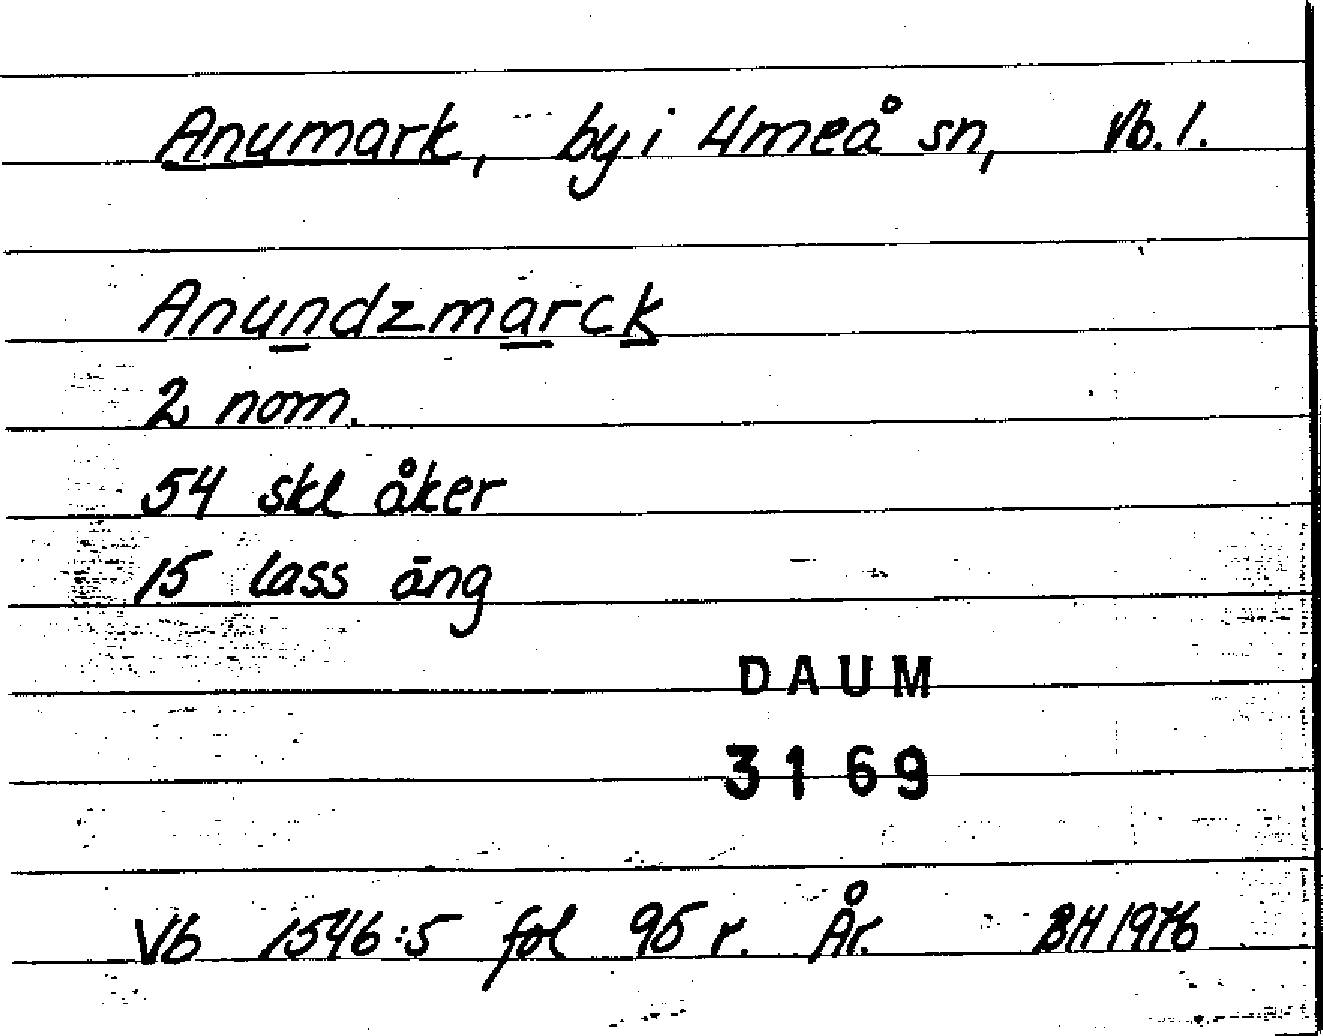 Anumark, by i Umeå sn, Vb. l.
Anundzmarck
2 nom.
54 skl åker
15 lass äng
DAUM
3169
Vb 1546:5 fol 95 r. År. BH 1976